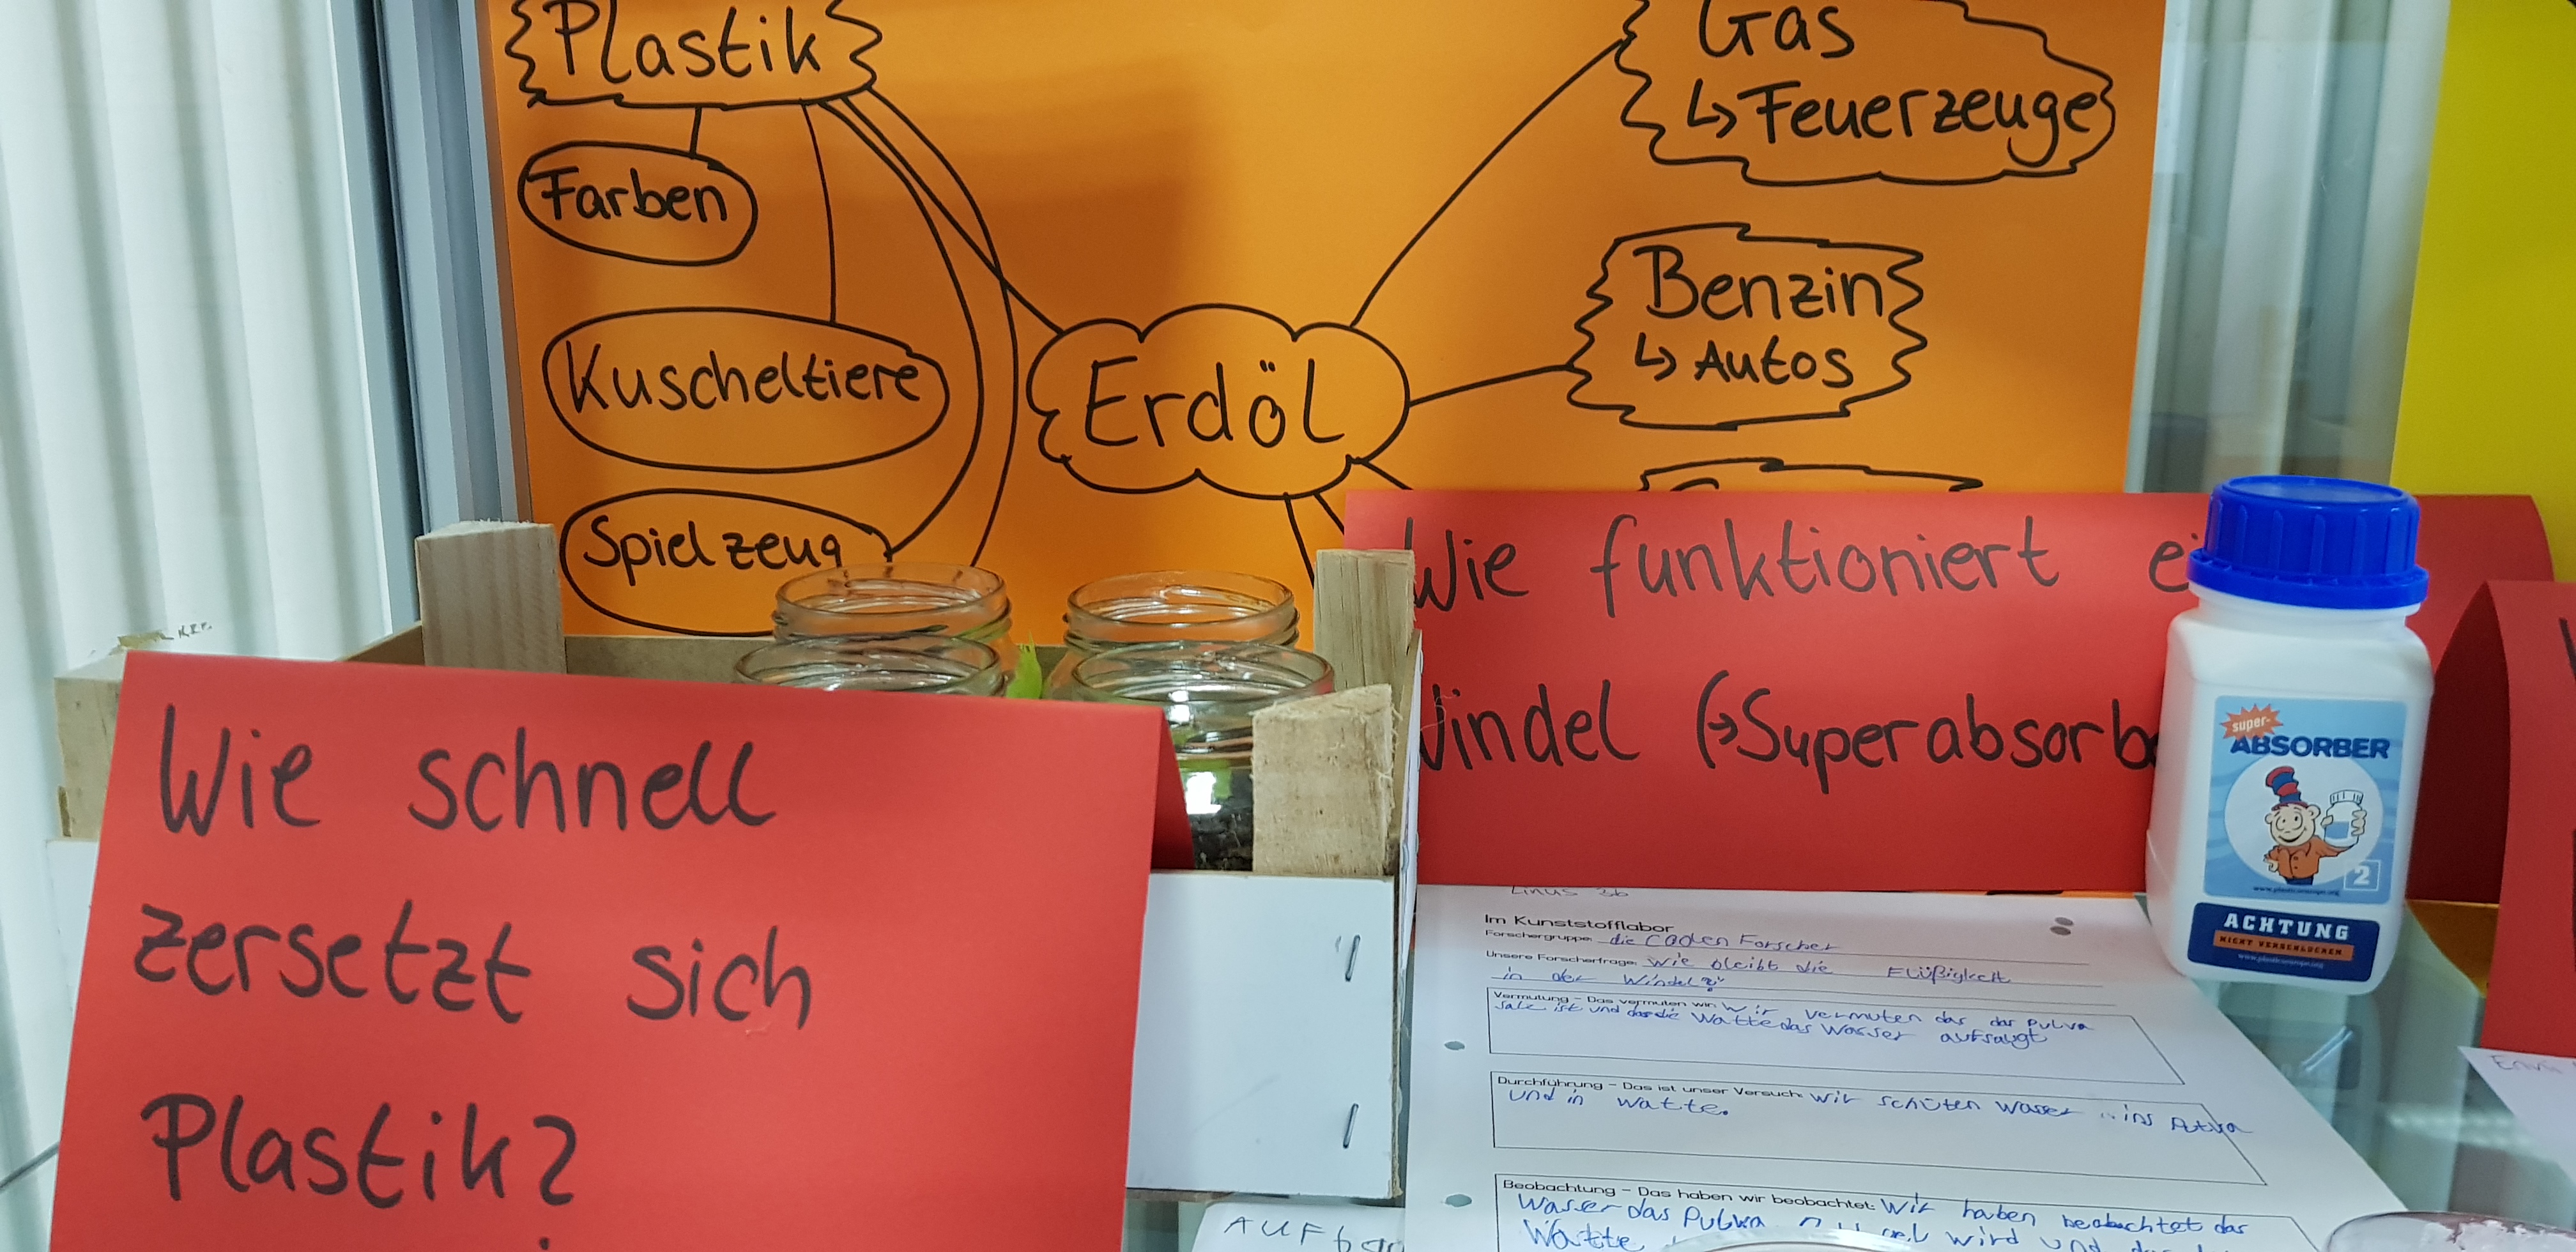 Plastik
Farben
Kuscheltiere
Spielzeug
Erdöl
Gas
↳ Feuerzeuge
Benzin
↳ Autos
Wie schnell
zersetzt sich
Plastik?
Wie funktioniert ei
Windel (→Superabsorbe
super-
ABSORBER
2
ACHTUNG
NICHT VERSCHLUCKEN
Linus 3b
Im Kunststofflabor
Forschergruppe: die coolen Forscher
Unsere Forscherfrage: Wie bleibt die Flüßigkeit
in der Windel?
Vermutung – Das vermuten wir: Wir vermuten das das Pulva
Salz ist und das die Watte das Wasser aufsaugt
Durchführung – Das ist unser Versuch: Wir schüten Wasser ins Pulva
und in Watte.
Beobachtung – Das haben wir beobachtet: Wir haben beobachtet das
Wasser das Pulwa wird und
Watte